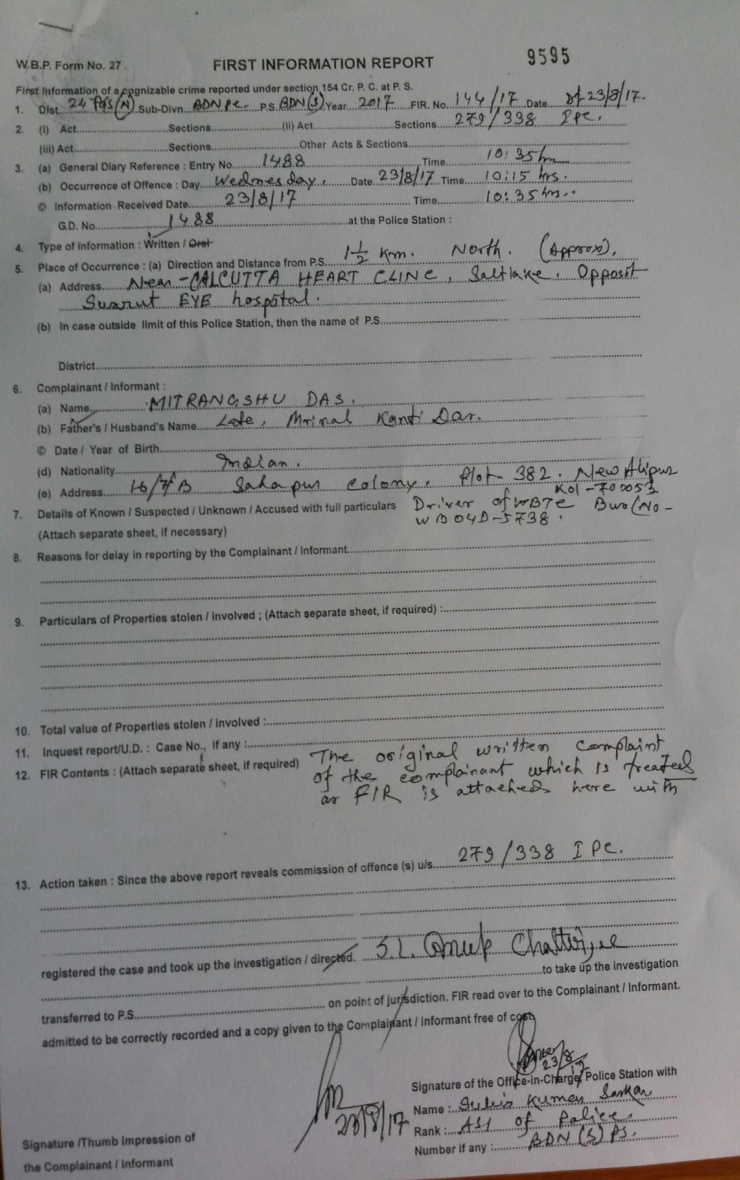 9595
W.B.P. Form No. 27 FIRST INFORMATION REPORT
First Information of a cognizable crime reported under section 154 Cr. P. C. at P. S.
1. Dist. 24 Pgs (N) Sub-Divn. BDN P.S. BDN (S) Year 2017 FIR. No. 144/17 Date dt-23/8/17.
2. (I) Act Sections (ii) Act Sections 279/338 IPC.
(iii) Act Sections Other Acts & Sections
3. (a) General Diary Reference : Entry No. 1488 Time 10:35 hrs
(b) Occurrence of Offence : Day Wednesday. Date 23/8/17 Time 10:15 hrs.
© Information Received Date 23/8/17 Time 10:35 hrs.
G.D. No. 1488 at the Police Station :
4. Type of information : Written / Oral
5. Place of Occurrence : (a) Direction and Distance from P.S. 1½ Km. North. (Approx).
(a) Address Near-CALCUTTA HEART CLINC, Saltlake. Opposit
Susrut EYE hospital.
(b) In case outside limit of this Police Station, then the name of P.S.
District
6. Complainant / Informant :
(a) Name MITRANGSHU DAS.
(b) Father's / Husband's Name Late, Mrinal Kanti Das.
© Date / Year of Birth
(d) Nationality Indian.
(e) Address 16/7B Sahapur Colony. Plot-382. New Alipur
Kol-700053
7. Details of Known / Suspected / Unknown / Accused with full particulars Driver of WBTC Bus (No-
WB04D-5738.
(Attach separate sheet, if necessary)
8. Reasons for delay in reporting by the Complainant / Informant
9. Particulars of Properties stolen / involved ; (Attach separate sheet, if required) :
10. Total value of Properties stolen / involved :
11. Inquest report/U.D. : Case No., if any :
12. FIR Contents : (Attach separate sheet, if required) The original written complaint
of the complainant which is treated
as FIR is attached here with
13. Action taken : Since the above report reveals commission of offence (s) u/s. 279/338 IPC.
registered the case and took up the investigation / directed. S.I. Anup Chatterjee
to take up the investigation
transferred to P.S. on point of jurisdiction. FIR read over to the Complainant / Informant.
admitted to be correctly recorded and a copy given to the Complainant / Informant free of cost.
23/8/17
23/8/17
Signature of the Office-in-Charge Police Station with
Name : Kumar Sarkar
Rank : ASI of Police.
Number if any : BDN (S) PS.
Signature /Thumb Impression of
the Complainant / Informant